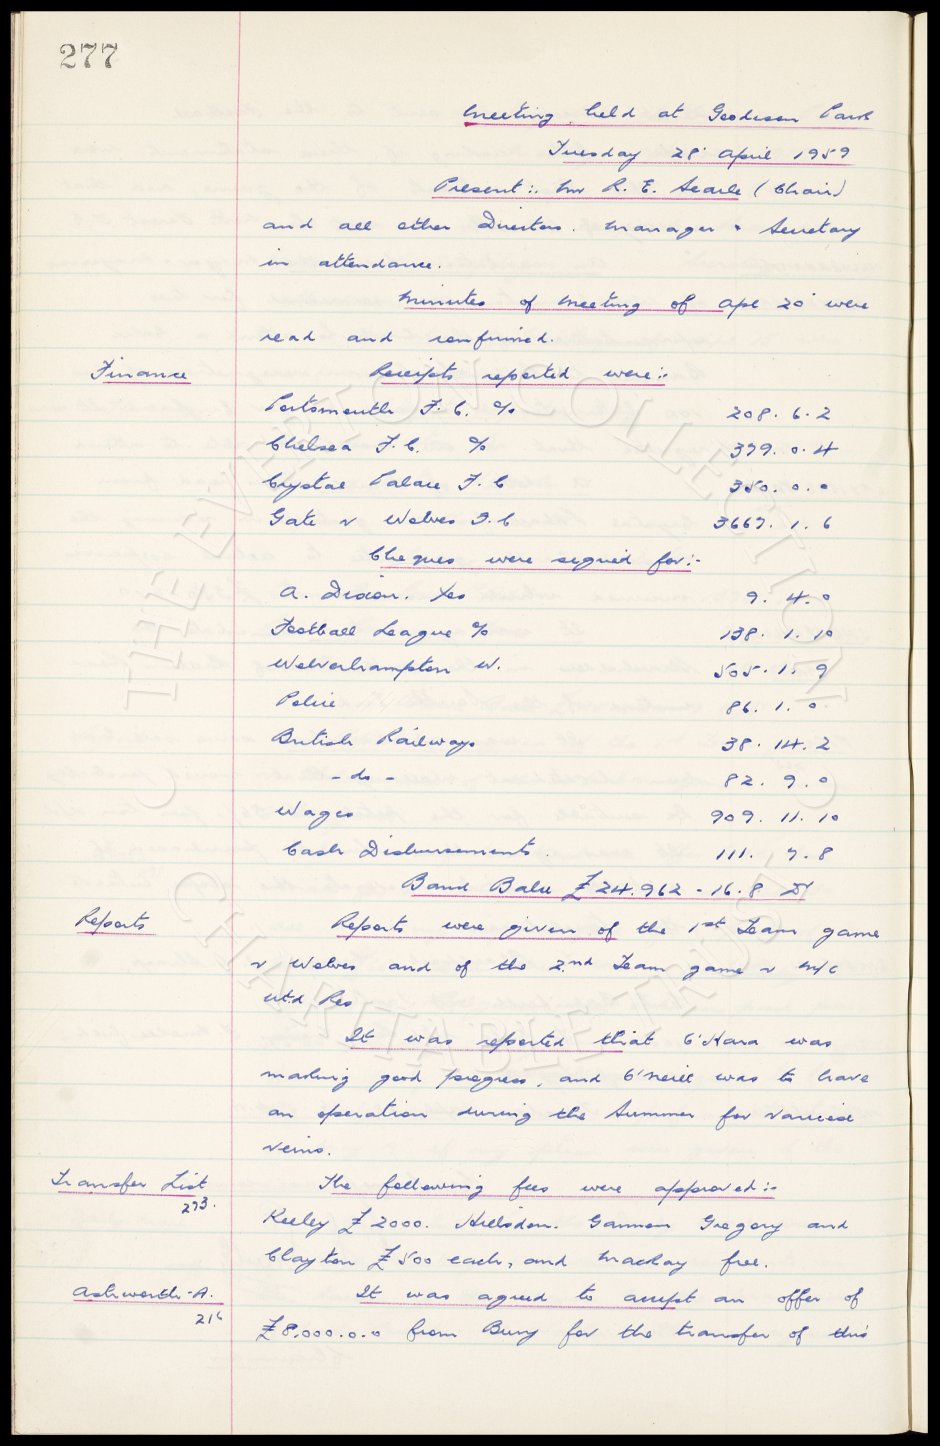 277
Meeting held at Goodison Park
Tuesday 28' April 1959
Present:- Mr R. E. Searle (Chair)
and all other Directors. Manager & Secretary
in attendance.
Minutes of Meeting of Apl 20' were
read and confirmed.
Finance
Receipts reported were:-
Portsmouth F.C. %
208. 6. 2
Chelsea F.C. %
379. 0. 4
Crystal Palace F.C
350. 0. 0
Gate v Wolves F.C
3667. 1. 6
Cheques were signed for:-
A. Dixon.
9. 4. 0
Football League %
138. 1. 10
Wolverhampton W.
505. 1. 9
Police
86. 1. 0
British Railways
38. 14. 2
- do -
82. 9. 0
Wages
909. 11. 10
Cash Disbursements.
111. 7. 8
Bank Balce £24.962 - 16. 8
Reports
Reports were given of the 1st Team game
v Wolves and of the 2nd Team game v M/c
Utd Res
It was reported that O'Hara was
making good progress, and O'Neill was to have
an operation during the Summer for varicose
veins.
Transfer List
273.
The following fees were approved:-
Keeley £2000. Hillsdon. Gannon Gregory and
Clayton £500 each, and Mackay free.
Ashworth-A.
216
It was agreed to accept an offer of
£8,000.0.0 from Bury for the transfer of this
THE EVERTON COLLECTION
CHARITABLE TRUST